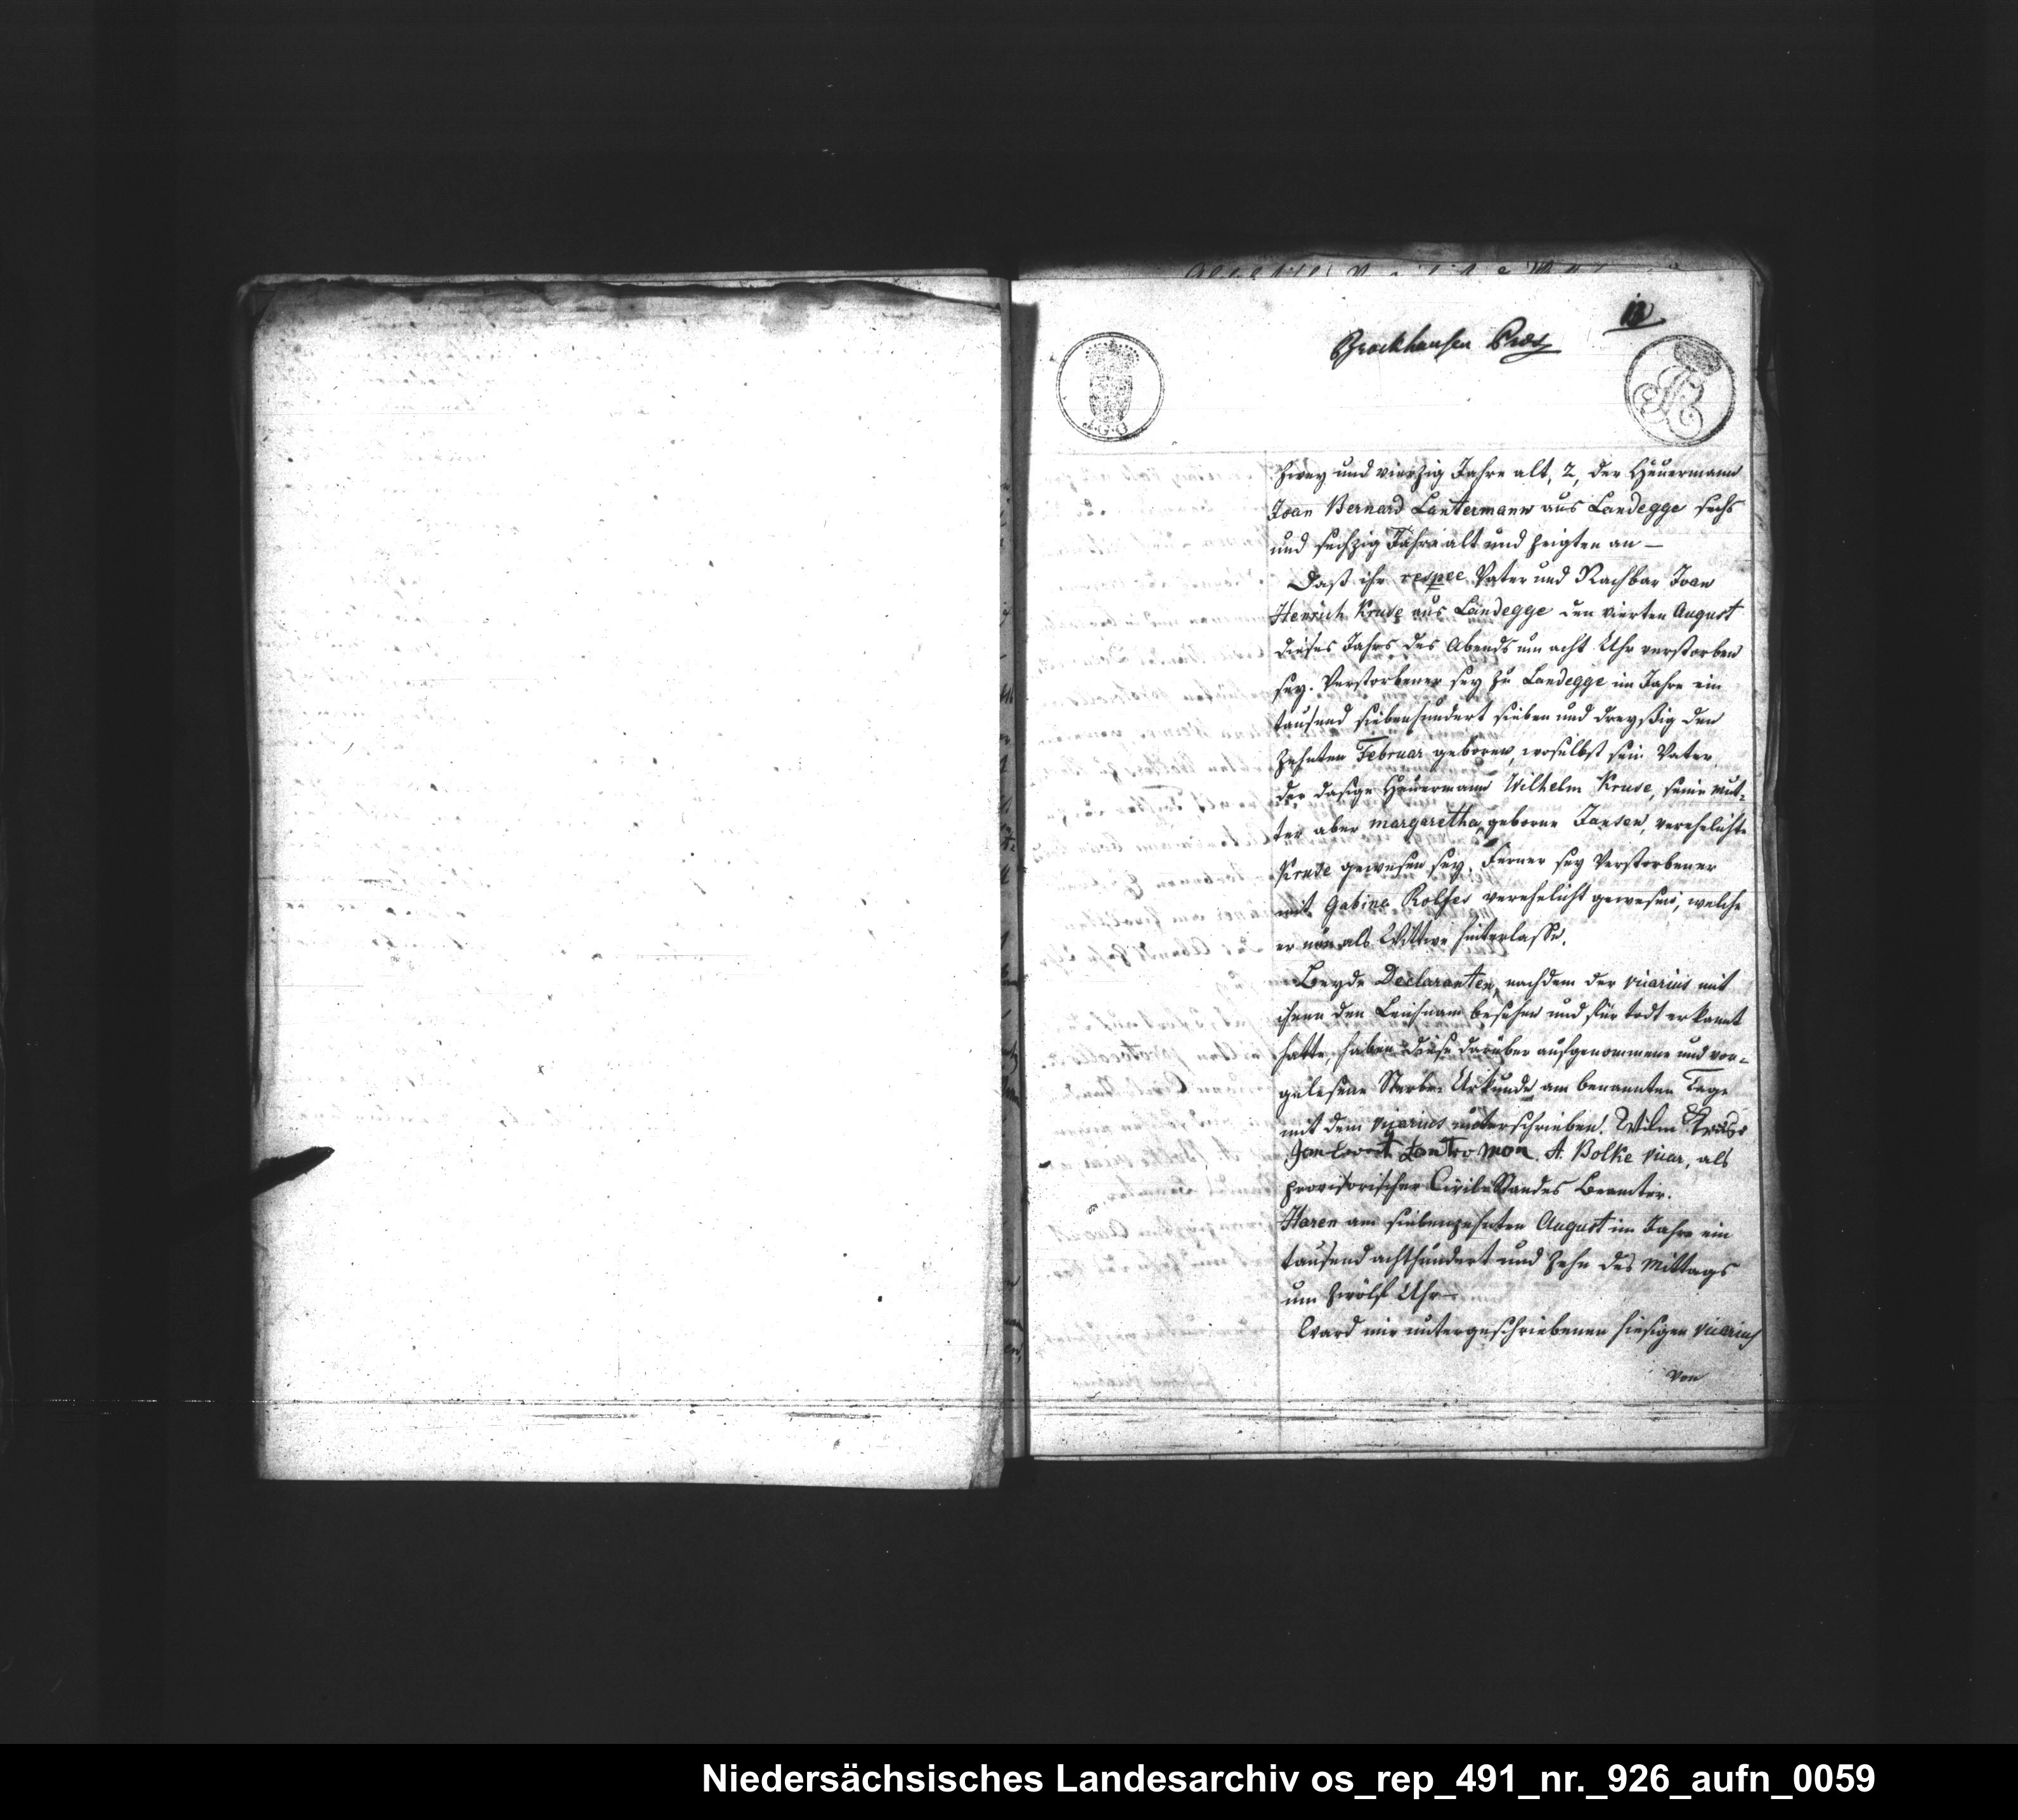 Brockhausen
J.G.G
zwey und vierzig Jahre alt, 2, der Heuermann
Joan Bernard Lantermann aus Landegge sechs
und sechzig Jahre alt und zeigten an —
Daß ihr respee Vater und Nachbar Joan
Henrich Kruse aus Landegge den vierten August
dieses Jahrs des Abends um acht Uhr verstorben
sey. Verstorbener sey zu Landegge im Jahre ein
tausend siebenhundert sieben und dreyßig den
zehnten Februar geboren, woselbst sein Vater
der dasige Heuermann Wilhelm Kruse, seine Mut-
ter aber Margaretha, geborne Jansen, verehelichte
Kruse gewesen sey. Ferner sey Verstorbener
mit Gabina Rolfes verehelicht gewesen, welche
er nun als Wittwe hinterlasse.
Beyde Declaranten, nachdem der vicarius mit
ihnen den Leichnam besehen und für todt erkannt
hatte, haben diese darüber aufgenommene und vor-
gelesene Sterbe Urkunde am benannten Tage
mit dem vicarius unterschrieben. Wilm Kruse
Jan Lantermon. A. Bolke vicar, als
provisorischer Civil Standes Beamter.
Haren am siebenzehnten August im Jahre ein
tausend achthundert und zehn des Mittags
um zwölf Uhr —
Ward mir untergeschriebenen hiesigen vicarius
von
Niedersächsisches Landesarchiv os_rep_491_nr._926_aufn_0059